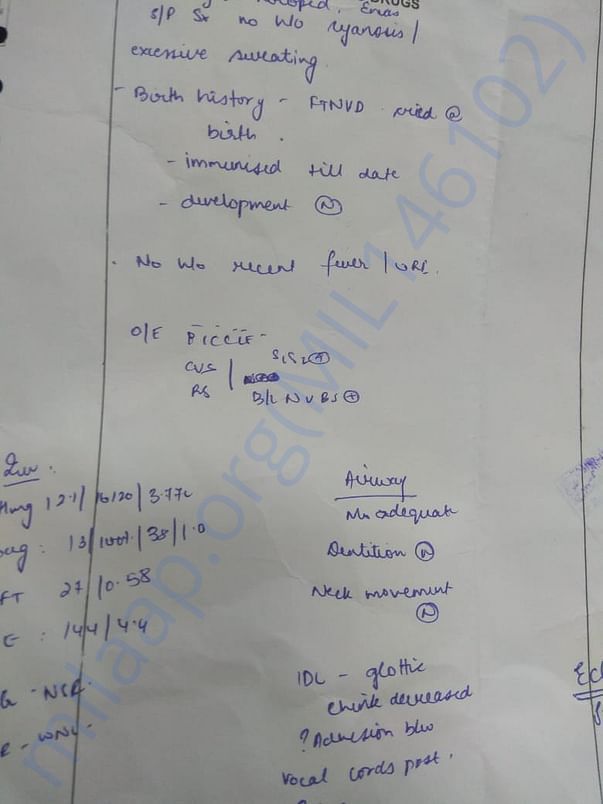 DRUGS
S/P Sx no h/o cyanosis /
excessive sweating.
- Birth history - FTNVD cried @
birth.
- immunised till date
- development (N)
. No h/o recent fever / URI.
O/E P̅I̅C̅C̅L̅E̅
CVS S1S2 (+)
RS B/L NVBS (+)
Inv:
12.1/ 16120 / 3.77L
: 13/100%/38/1.0
FT 27/0.58
E : 144/4.4
G - NSR.
R - WNL -
Airway
Mo adequate
Dentition (N)
Neck movement
(N)
IDL - glottic
chink decreased
? Adhesion b/w
vocal cords post.
milaap.org(MIL146102)